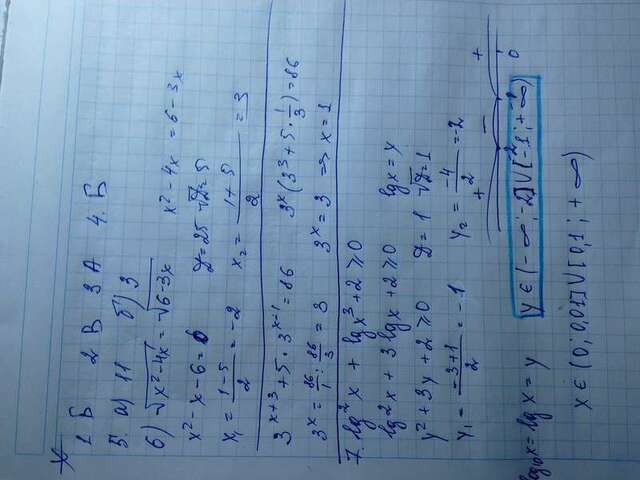 1 Б 2 В 3 А 4. Б
5. а) 11 б) 3
6) √x²-4x = √6-3x x²-4x = 6-3x
x²-x-6=0 D=25 √D=5
x₁ = (1-5)/2 = -2 x₂ = (1+5)/2 = 3
3^(x+3) + 5·3^(x-1) = 86 3^x(3³+5·1/3) = 86
3^x = 86/1 : 86/3 = 3 3^x = 3 ⇒ x = 1
7. lg²x + lg x³ + 2 ≥ 0
lg²x + 3 lg x + 2 ≥ 0 lg x = y
y² + 3y + 2 ≥ 0 D = 1 √D = 1
y₁ = (-3+1)/2 = -1 y₂ = -4/2 = -2
+ - +
-2 -1 0
log₁₀x = lg x = y y ∈ (-∞; -2] ∪ [-1; +∞)
x ∈ (0; 0,01] ∪ [0,1; +∞)